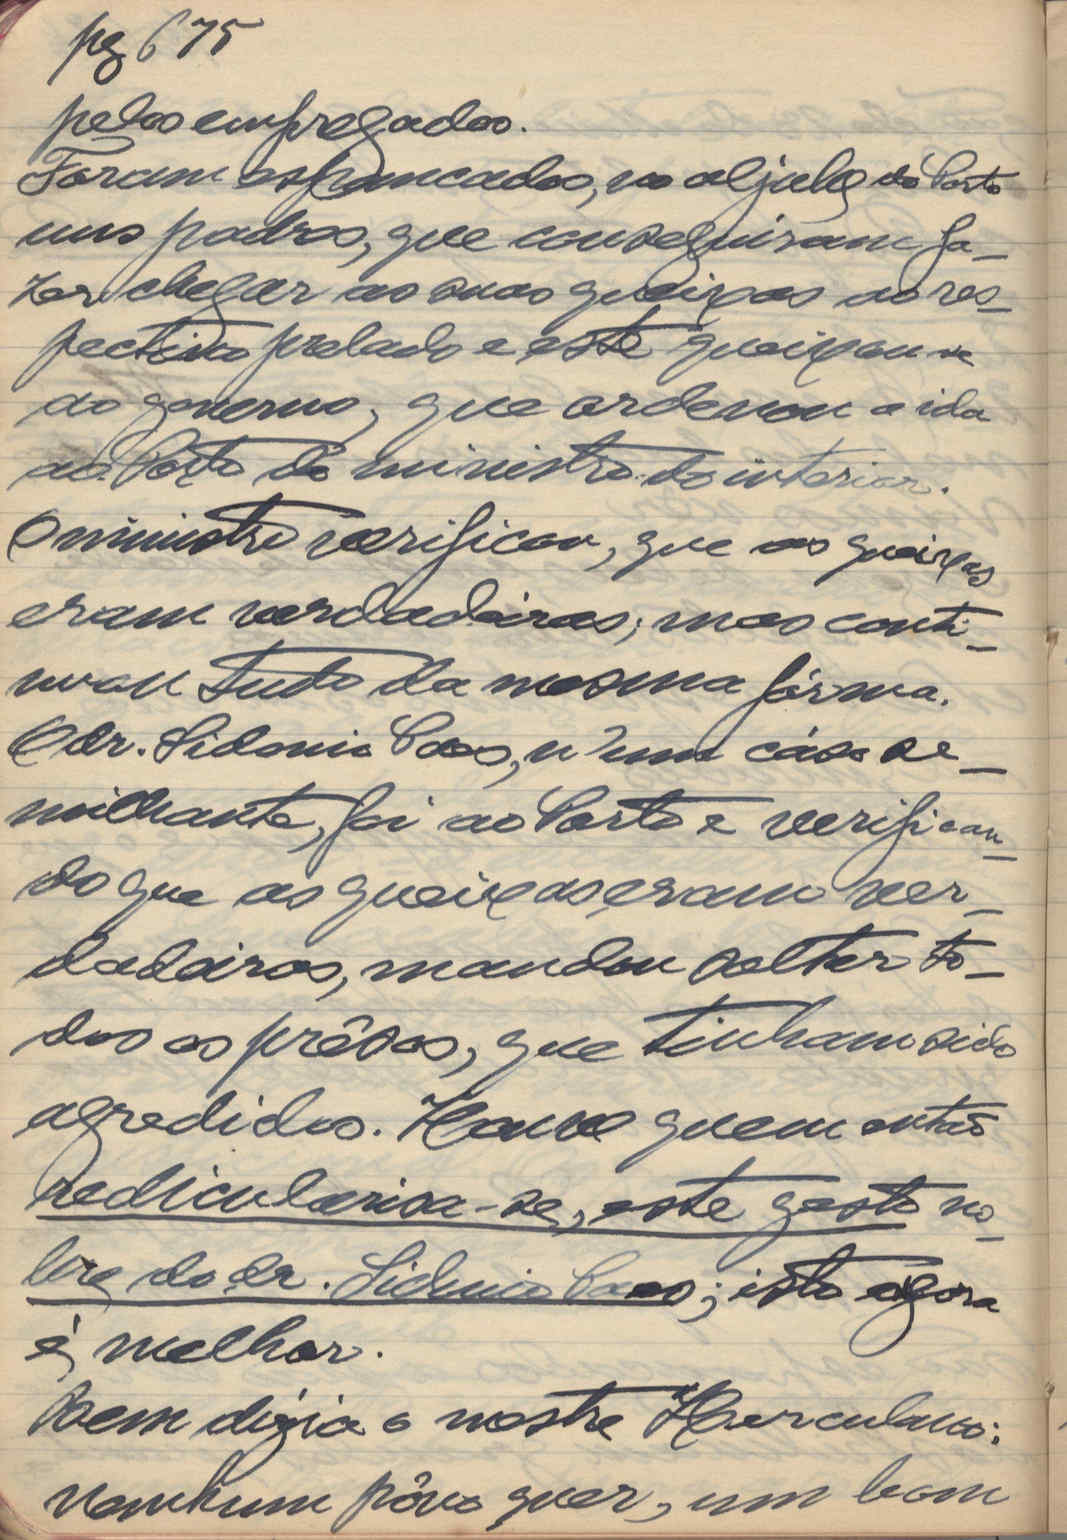 pg 675
pelos empregados.
Foram espancados, no aljube do Porto
uns padres, que conseguiram fa-
zer chegar as suas queixas ao res-
pectivo prelado e este queixou-se
ao governo, que ordenou a ida
ao Porto do ministro do interior.
O ministro verificou, que as queixas
eram verdadeiras; mas conti-
nuou tudo da mesma fórma.
O dr. Sidonio Paes, n'um cáso se-
milhante, foi ao Porto e verifican-
do que as queixas eram ver-
dadeiras, mandou soltar to-
dos os prêsos, que tinham sido
agredidos. Houve quem então
rediculariza-se, este gesto no-
bre do dr. Sidonio Paes; isto agora
é, melhor.
Bem dizia o nosso Herculano:
nenhum pôvo quer, um bom